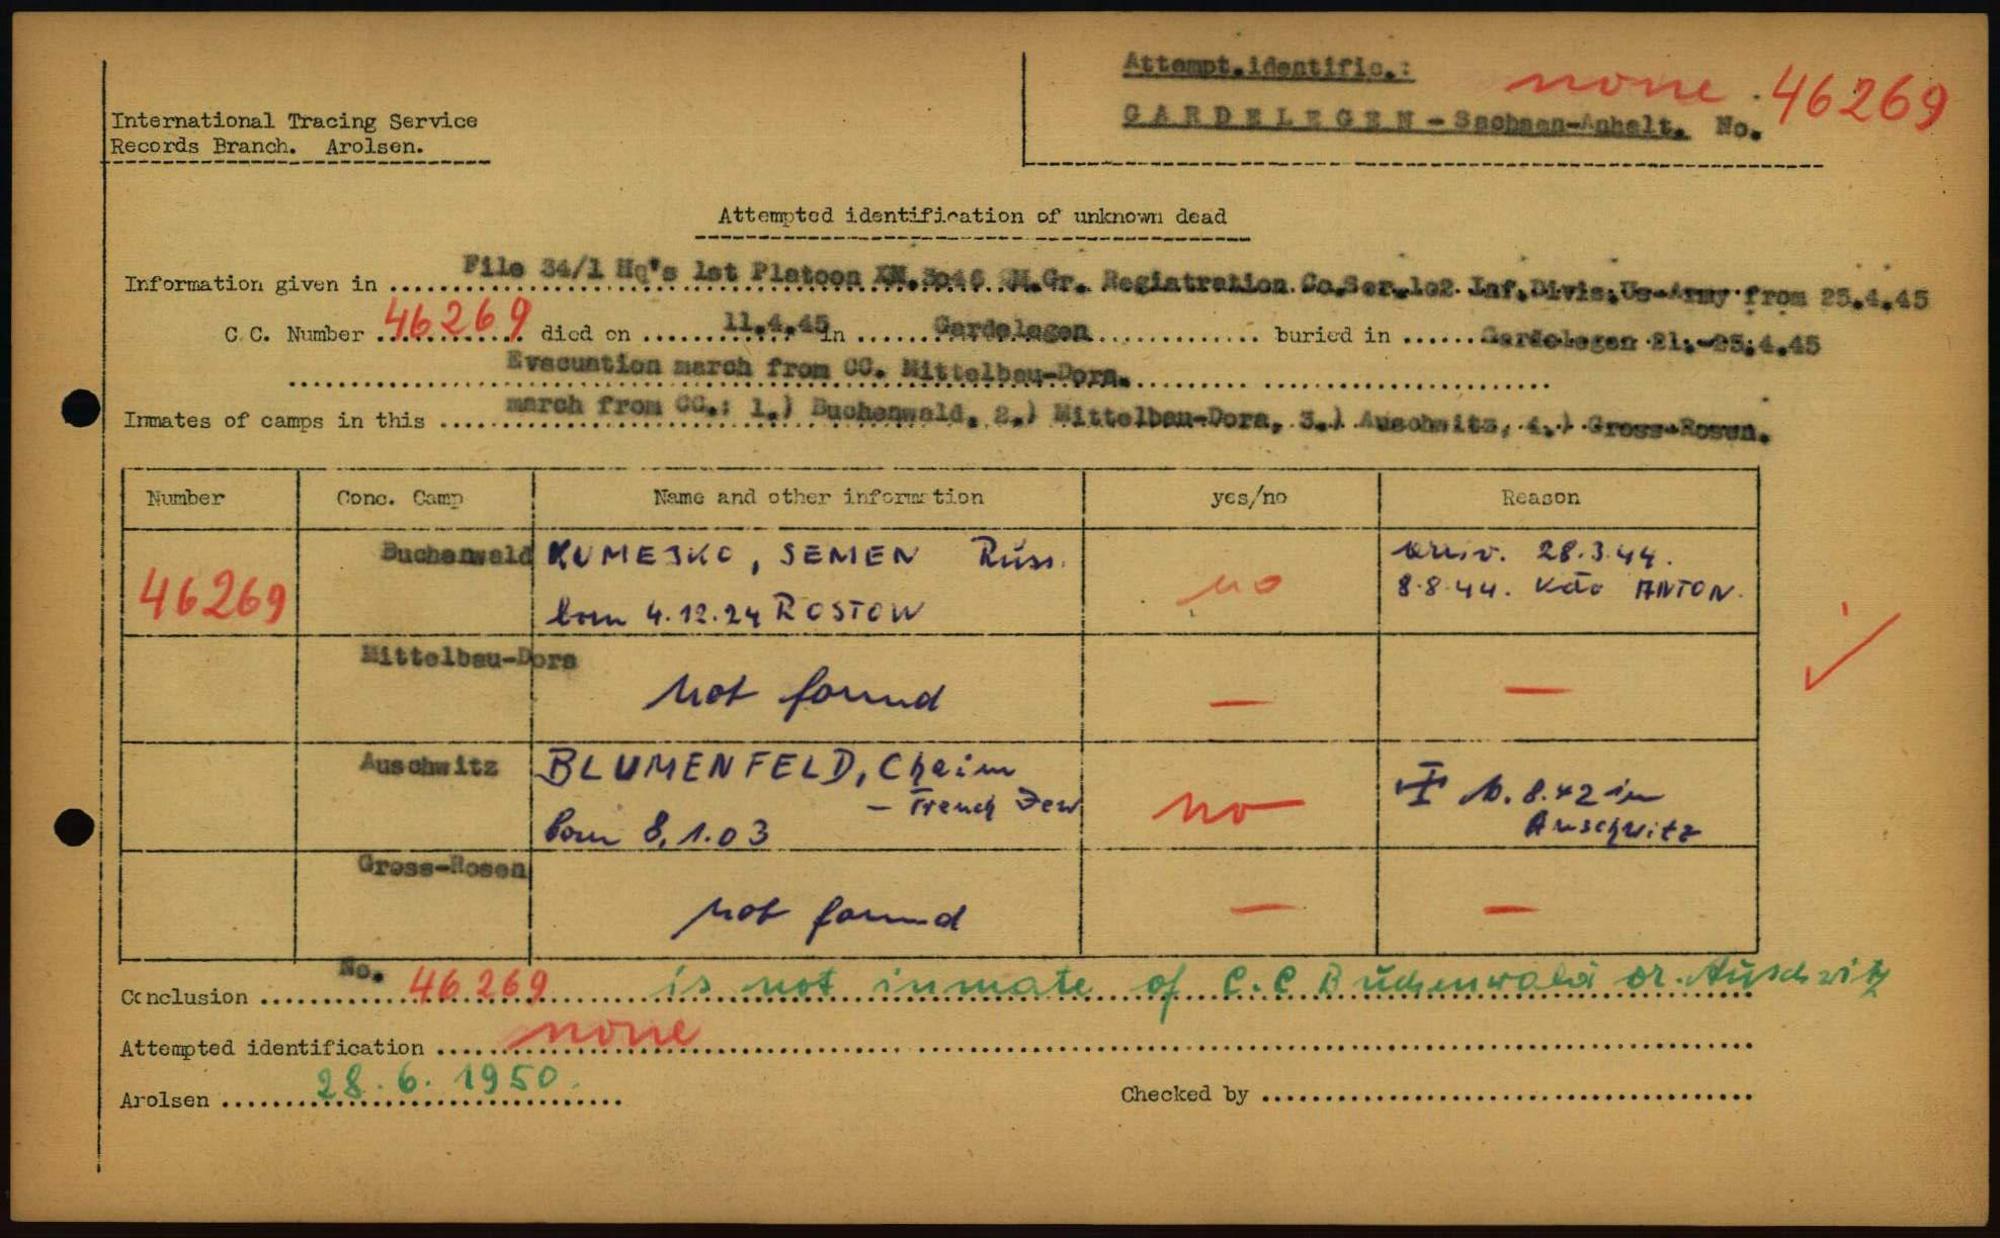 Attempt.identific.: none
GARDELEGEN - Sachsen-Anhalt. No. 46269
International Tracing Service
Records Branch. Arolsen.
Attempted identification of unknown dead
Information given in File 34/1 Hq's 1st Platoon QM.Gr. Registration Co.Ser.1o2 Inf.Divis.Us-Army from 25.4.45
C.C. Number 46269 died on 11.4.45 in Gardelegen buried in Gardelegen 21.-25.4.45
Evacuation march from CC. Mittelbau-Dora.
Inmates of camps in this march from CC.: 1.) Buchenwald, 2.) Mittelbau-Dora, 3.) Auschwitz, 4.) Gross-Rosen.
Number Conc. Camp Name and other information yes/no Reason
46269 Buchenwald KUMESKO, SEMEN Russ. born 4.12.24 ROSTOW no 28.3.44. 8.8.44. Kdo ANTON.
Mittelbau-Dora not found — —
Auschwitz BLUMENFELD, Chaim – French Jew born 8.1.03 no 8.42 in Auschwitz
Gross-Rosen not found — —
Conclusion No. 46269 is not inmate of C.C Buchenwald or Auschwitz
Attempted identification none
Arolsen 28.6.1950. Checked by